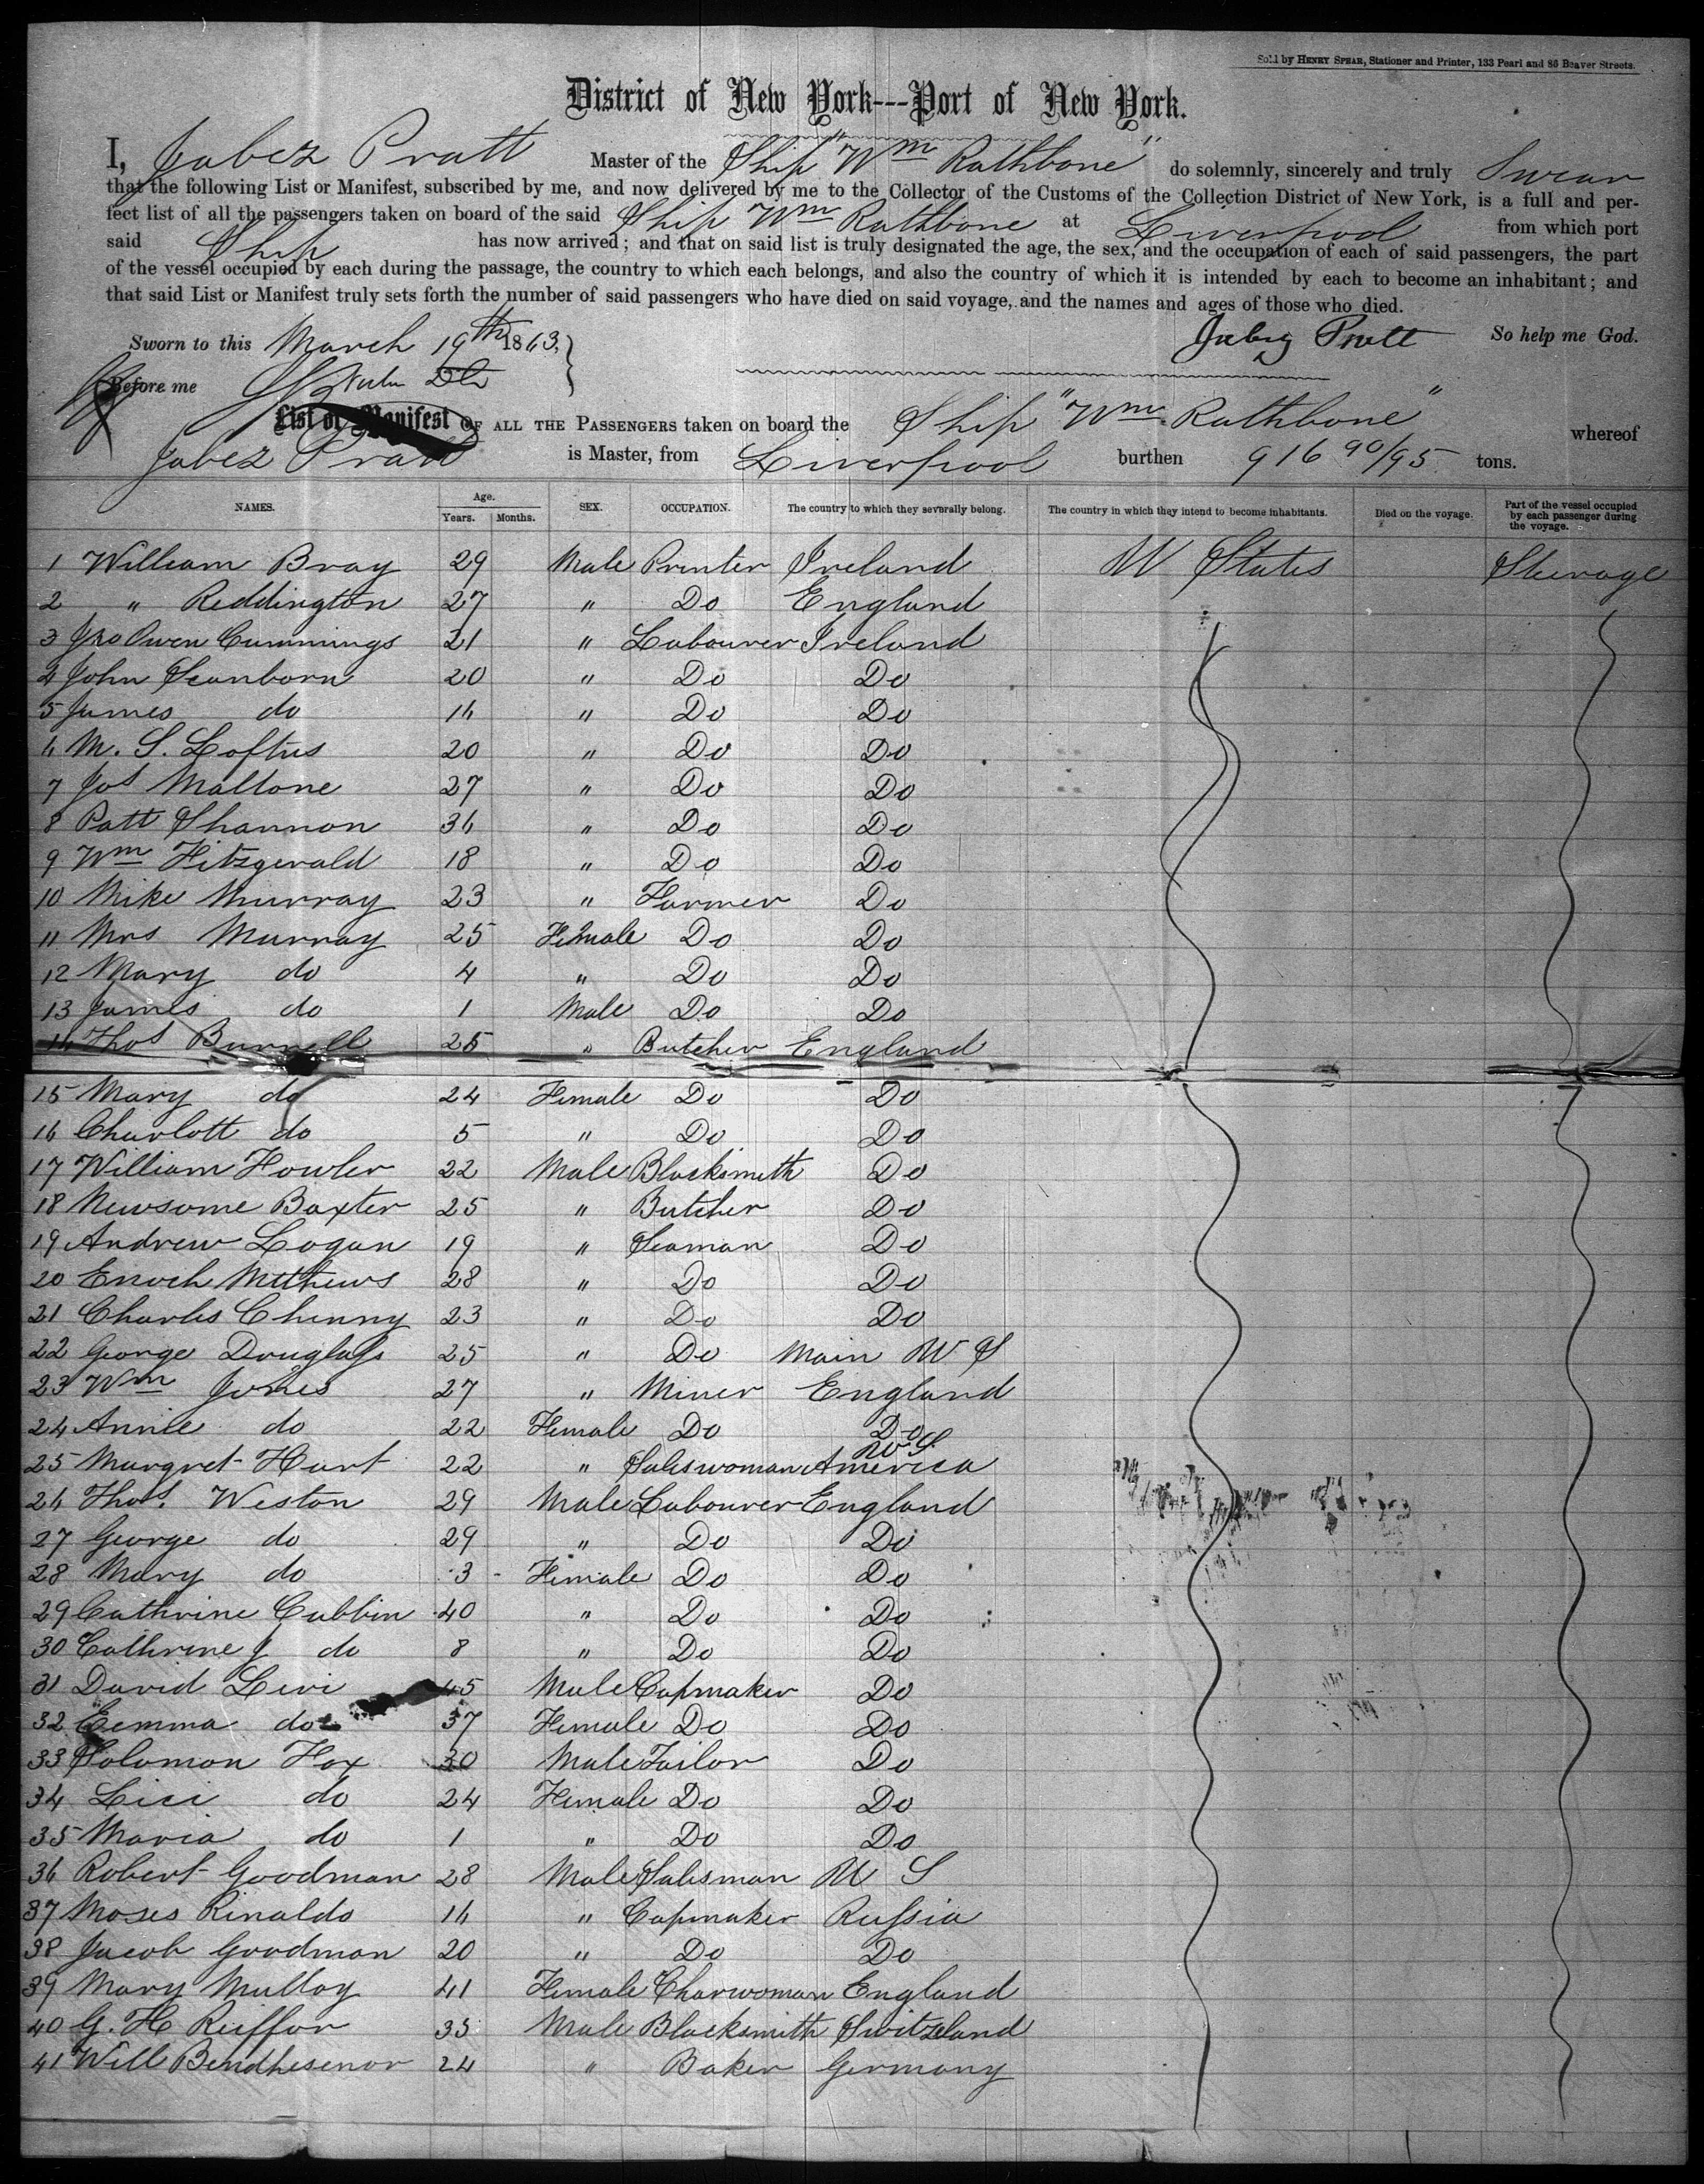 Sold by HENRY SPEAR, Stationer and Printer, 133 Pearl and 86 Beaver Streets.
District of New York---Port of New York.
I, Jabez Pratt Master of the Ship "Wm Rathbone" do solemnly, sincerely and truly Swear
that the following List or Manifest, subscribed by me, and now delivered by me to the Collector of the Customs of the Collection District of New York, is a full and per-
fect list of all the passengers taken on board of the said Ship Wm Rathbone at Liverpool from which port
said Ship has now arrived; and that on said list is truly designated the age, the sex, and the occupation of each of said passengers, the part
of the vessel occupied by each during the passage, the country to which each belongs, and also the country of which it is intended by each to become an inhabitant; and
that said List or Manifest truly sets forth the number of said passengers who have died on said voyage, and the names and ages of those who died.
Sworn to this March 19th 1863. Jabez Pratt So help me God.
Before me
List or Manifest OF ALL THE PASSENGERS taken on board the Ship "Wm. Rathbone" whereof
Jabez Pratt is Master, from Liverpool burthen 916 90/95 tons.
NAMES. Age. Years. Months. SEX. OCCUPATION. The country to which they severally belong. The country in which they intend to become inhabitants. Died on the voyage. Part of the vessel occupied by each passenger during the voyage.
1 William Bray 29 Male Printer Ireland U States Steerage
2 " Reddington 27 " Do England
3 Jno Owen Cummings 21 " Labourer Ireland
4 John Scanborn 20 " Do Do
5 James do 16 " Do Do
6 M. S. Loftus 20 " Do Do
7 Jos Maltone 27 " Do Do
8 Patt Shannon 36 " Do Do
9 Wm Fitzgerald 18 " Do Do
10 Mike Murray 23 " Farmer Do
11 Mrs Murray 25 Female Do Do
12 Mary do 4 " Do Do
13 James do 1 Male Do Do
14 Thos Burnell 25 " Butcher England
15 Mary do 24 Female Do Do
16 Charlott do 5 " Do Do
17 William Fowler 22 Male Blacksmith Do
18 Newsome Baxter 25 " Butcher Do
19 Andrew Logan 19 " Seaman Do
20 Enoch Mathews 28 " Do Do
21 Charles Chenny 23 " Do Do
22 George Douglass 25 " Do Main U S
23 Wm Jones 27 " Miner England
24 Annie do 22 Female Do Do
25 Margret Hart 22 " Saleswoman America U S.
26 Thos. Weston 29 Male Labourer England
27 George do 29 " Do Do
28 Mary do 3 Female Do Do
29 Cathrine Cubbin 40 " Do Do
30 Cathrine J do 8 " Do Do
31 David Levi 45 Male Capmaker Do
32 Eemma do 37 Female Do Do
33 Solomon Fox 30 Male Tailor Do
34 Lici do 24 Female Do Do
35 Maria do 1 " Do Do
36 Robert Goodman 28 Male Salesman U S
37 Moses Rinaldo 16 " Capmaker Russia
38 Jacob Goodman 20 " Do Do
39 Mary Mulloy 41 Female Charwoman England
40 G. H Reiffor 35 Male Blacksmith Switzeland
41 Will Bendhesenor 24 " Baker Germany